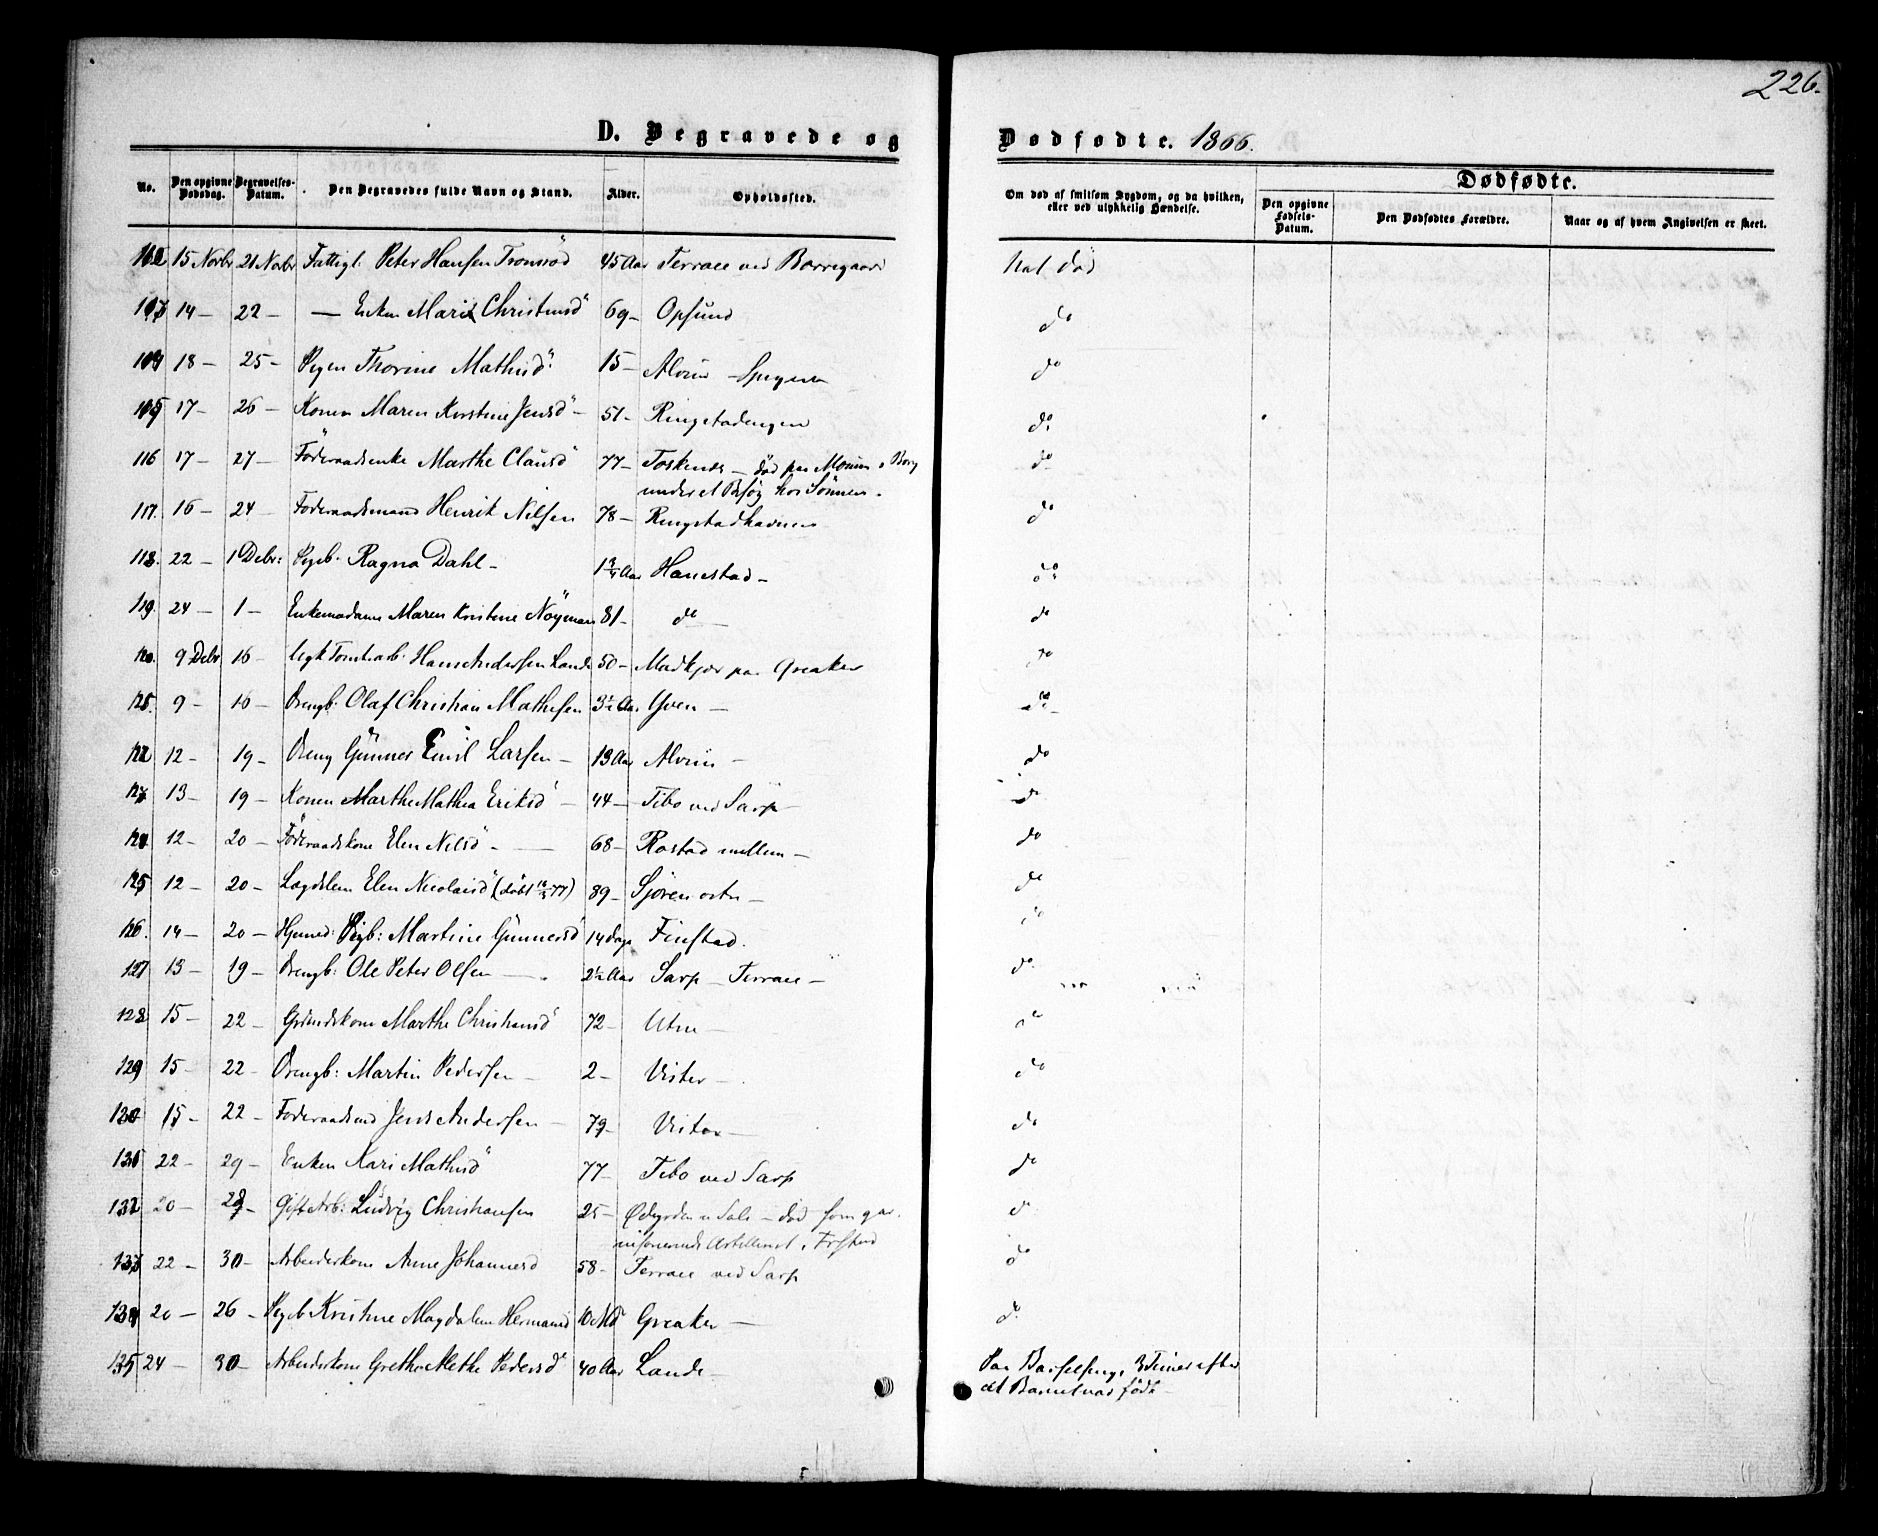 226.
D. Begravede og Dødfødte. 1866.
No. Den opgivne Dødsdag. Begravelses-Datum. Den Begravedes fulde Navn og Stand. Alder. Opholdssted. Om død af smitsom Sygdom, og da hvilken, eller ved ulykkelig Hændelse. Dødfødte.
Den opgivne Fødsels-Datum. Den Dødfødtes Forældre. Naar og af hvem Angivelsen er skeet.
15 Novbr 21 Novbr Fattigl. Peter Hansen 45 Aar Terrace ved Borregaard Nat. død
14 — 22 — — Enken Mari Christensd 69 — Opsund do
18 — 25 — Pigen Thorine Mathisd 15 — Alvim do
17 — 26 — Konen Maren Kirstine Jensd — 51 — Ringstadengen do
116 17 — 27 — Föderaadsenke Marthe Clausd 77 — Torkenes — død paa Moum i Borg do
under et Besøg hos Sönnen.
117. 16 — 24 Föderaadsmand Henrik Nilsen 78 — Ringstadhavnen do
118. 22 — 1 Debr: Pigeb. Ragna Dahl — 1 3/4 Aar Hanestad — do
119. 24 — 1 — Enkemadame Maren Kristine Nöyman 81 — do do
120. 9 Debr 16 — Hans Andersen Lande 50 — paa Greaker do
9 — 16 — Drengb: Olaf Christian Mathisen 3 1/2 Aar Yven — do
122 12 — 19 — Dreng Gunner Emil Larsen — 13 Aar Alvim — do
13 — 19 — Konen Marthe Mathea Eriksd — 44 — Tibo ved Sarp do
12 — 20 — Föderaadskone Elen Nilsd — 68 — Rostad mellem — do
125 12 — 20 — Lægdslem Elen Nicolaisd (döbt 77) 89 — Sjøren do
126. 14 — 20 — Hjemmed: Pigb: Martine Gunnersd 14 Dage Finstad. do
127 13 — 19 — Drengb: Ole Peter Olsen 2 1/2 Aar Sarp — Terrace — do
128 15 — 22 — Marthe Christensd 72 — Utne — do
129 15 — 22 — Drengb: Martin Pedersen — 2 — Vister — do
130 15 — 22 — Föderaadsmd Jens Andersen — 79 — Vister — do
131 22 — 29 — Enken Kari Mathisd 77 — Tibo ved Sarp do
132 20 — 28 — Gift Arb: Ludvig Christiansen 25 — Ødegården — död som gar- do
nisonerende Artillerist i Frstad
133 22 — 30 — Arbeiderkone Anne Johannesd 58 — Terrace ved Sarp do
134 20 — 26 — Pigeb Kristine Magdalene Hermansd 10 Md Greaker — do
135 24 — 30 — Arbeiderkone Grethe Methe Pedersd 40 Aar Lande — Paa Barselseng, 3 Timer efter
at Barnet var född